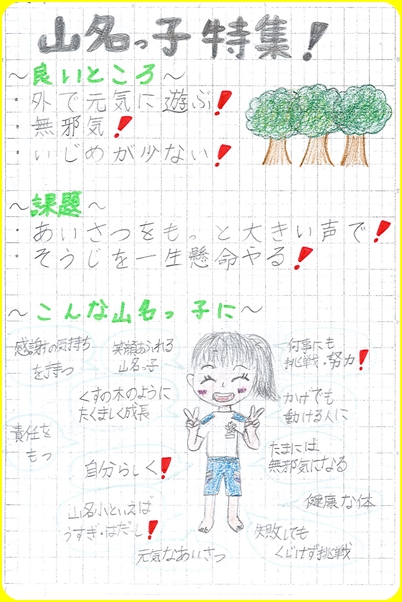 山名っ子特集!
～良いところ～
・外で元気に遊ぶ!
・無邪気!
・いじめが少ない!
～課題～
・あいさつをもっと大きい声で!
・そうじを一生懸命やる!
～こんな山名っ子に～
感謝の気持ち
を持つ
笑顔あふれる
山名っ子
何事にも
挑戦・努力!
くすの木のように
たくましく成長
かげでも
動ける人に
責任を
もつ
自分らしく!
たまには
無邪気になる
山名小といえば
うすぎ・はだし!
健康な体
元気なあいさつ
失敗しても
くじけず挑戦